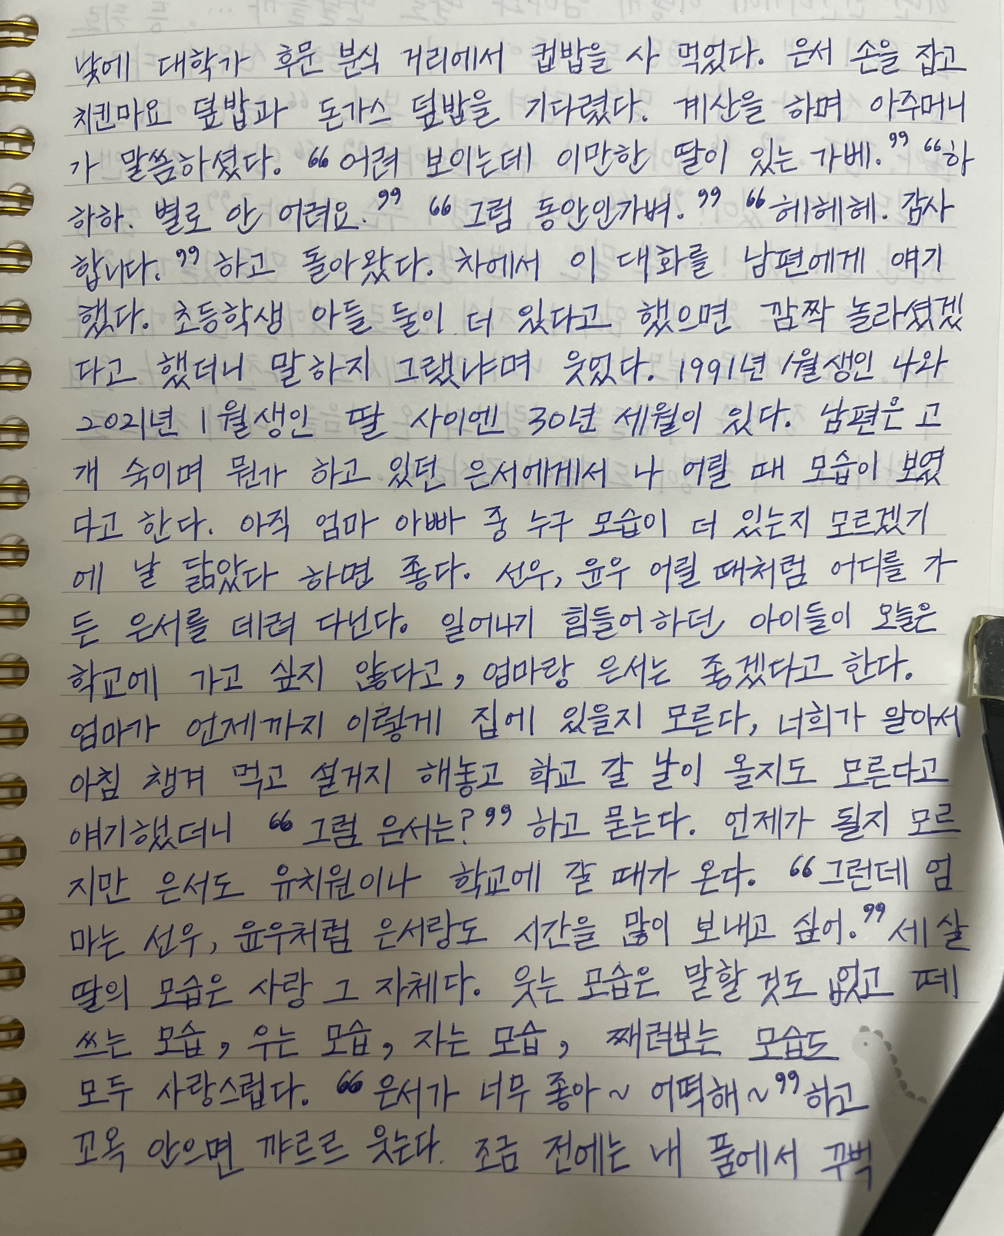 낮에 대학가 후문 분식 거리에서 컵밥을 사 먹었다. 은서 손을 잡고
치킨마요 덮밥과 돈가스 덮밥을 기다렸다. 계산을 하며 아주머니
가 말씀하셨다. “어려 보이는데 이만한 딸이 있는 가베.” “하
하하. 별로 안 어려요.” “그럼 동안인가벼.” “헤헤헤. 감사
합니다.” 하고 돌아왔다. 차에서 이 대화를 남편에게 얘기
했다. 초등학생 아들 둘이 더 있다고 했으면 깜짝 놀라셨겠
다고 했더니 말하지 그랬냐며 웃었다. 1991년 1월생인 나와
2021년 1월생인 딸 사이엔 30년 세월이 있다. 남편은 고
개 숙이며 뭔가 하고 있던 은서에게서 나 어릴 때 모습이 보였
다고 한다. 아직 엄마 아빠 중 누구 모습이 더 있는지 모르겠기
에 날 닮았다 하면 좋다. 선우, 윤우 어릴 때처럼 어디를 가
든 은서를 데려 다닌다. 일어나기 힘들어하던 아이들이 오늘은
학교에 가고 싶지 않다고, 엄마랑 은서는 좋겠다고 한다.
엄마가 언제까지 이렇게 집에 있을지 모른다, 너희가 알아서
아침 챙겨 먹고 설거지 해놓고 학교 갈 날이 올지도 모른다고
얘기했더니 “그럼 은서는?” 하고 묻는다. 언제가 될지 모르
지만 은서도 유치원이나 학교에 갈 때가 온다. “그런데 엄
마는 선우, 윤우처럼 은서랑도 시간을 많이 보내고 싶어.” 세 살
딸의 모습은 사랑 그 자체다. 웃는 모습은 말할 것도 없고 떼
쓰는 모습, 우는 모습, 자는 모습, 째려보는 모습도
모두 사랑스럽다. “은서가 너무 좋아~ 어떡해~” 하고
꼬옥 안으면 꺄르르 웃는다. 조금 전에는 내 품에서 꾸벅